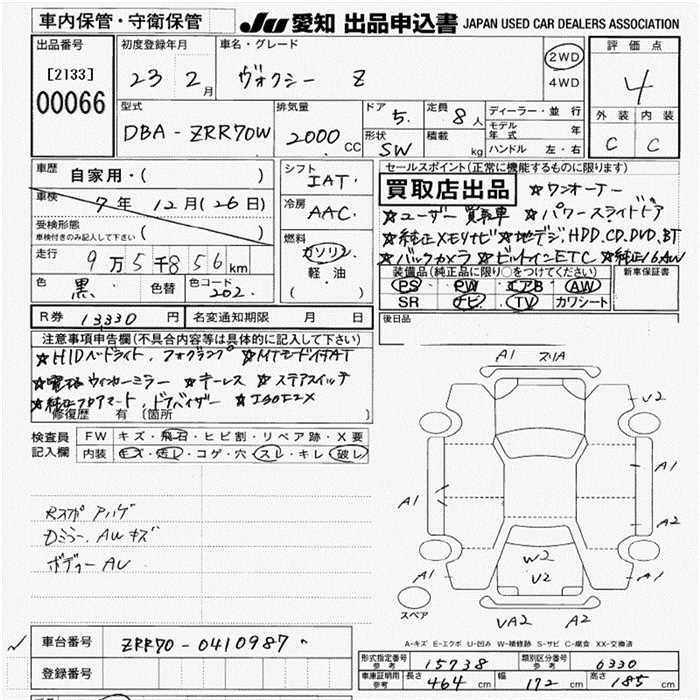 車内保管・守衛保管 JU 愛知 出品申込書 JAPAN USED CAR DEALERS ASSOCIATION
出品番号 初度登録年月 車名・グレード 評価点
[2133] 00066 23 2月 ヴォクシー Z 2WD 4WD 4
外装 内装
C C
型式 排気量 ドア 5. 定員 8人 ディーラー・並行
DBA-ZRR70W 2000CC 形状 SW 積載 kg モデル年式 年
ハンドル 左・右
車歴 自家用・( ) シフト IAT. セールスポイント(正常に機能するものに限ります)
買取店出品 ☆ワンオーナー
車検 7年12月(26日) 冷房 AAC. ☆ユーザー買取車 ☆パワースライドドア
受検形態 車検付きのみ記入して下さい ( ) 燃料 ガソリン ☆純正メモリナビ ☆地デジ,HDD,CD,DVD,BT
走行 9万5千856km 軽油 ☆バックカメラ ☆ビルトインETC ☆純正16AW
色 黒. 色替 色コード 202. ( ) 装備品(純正品に限り○をつけてください) 新車保証書
PS PW エアB AW
SR ナビ TV カワシート
R券 13330円 名変通知期限 月 日 後日品
注意事項申告欄(不具合内容等は具体的に記入して下さい)
☆HIDヘッドライト,フォグランプ ☆MTモード付AT
☆電格ウィンカーミラー ☆キーレス ☆ステアスイッチ
☆純正フロアマット,ドアバイザー
修復歴 有 〔箇所 〕
検査員記入欄 FW キズ・飛石・ヒビ割・リペア跡・X要
内装 キズ・汚レ・コゲ・穴・スレ・キレ・破レ
A1 スリA
U2
A1
A1
A2
A1
A1
W2
U2
スペア
UA2 A2
Rスポ アハゲ
Dミラー,AWキズ
ボディーAU
A-キズ E-エクボ U-凹み W-補修跡 S-サビ C-腐食 XX-交換済
車台番号 ZRR70-0410987
登録番号
形式指定番号 参考 15738 類別区分番号 参考 6330
車庫証明用 参考 長さ 464cm 幅 172cm 高さ 185cm